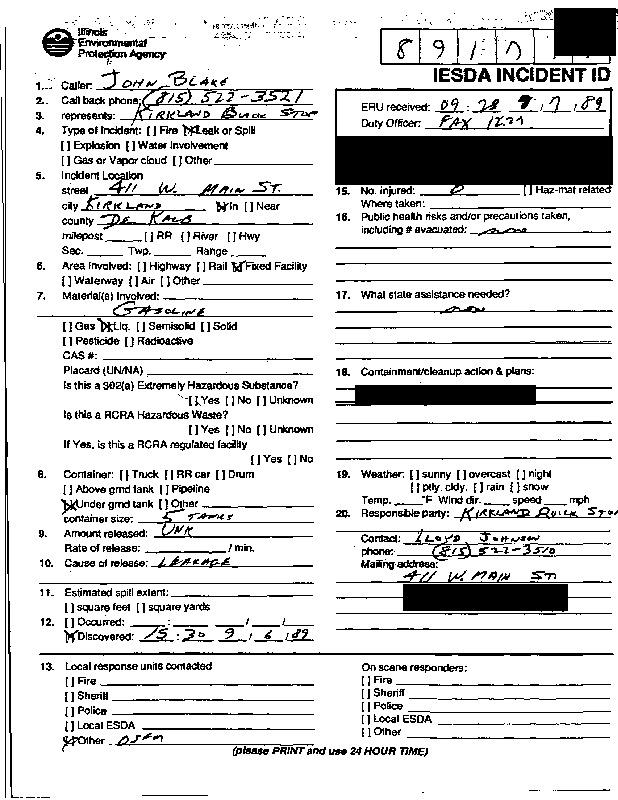 Illinois
Environmental
Protection Agency
8 9 1 7
IESDA INCIDENT ID
1. Caller: JOHN BLAKE
2. Call back phone: (815) 522-3521
3. represents: KIRKLAND QUICK STOP
4. Type of Incident: [ ] Fire [X] Leak or Spill
[ ] Explosion [ ] Water Involvement
[ ] Gas or Vapor cloud [ ] Other
5. Incident Location
street 411 W. MAIN ST.
city KIRKLAND [X] In [ ] Near
county DE KALB
milepost [ ] RR [ ] River [ ] Hwy
Sec. Twp. Range
6. Area Involved: [ ] Highway [ ] Rail [X] Fixed Facility
[ ] Waterway [ ] Air [ ] Other
7. Material(s) Involved:
GASOLINE
[ ] Gas [X] Liq. [ ] Semisolid [ ] Solid
[ ] Pesticide [ ] Radioactive
CAS #:
Placard (UN/NA)
Is this a 302(a) Extremely Hazardous Substance?
[ ] Yes [ ] No [ ] Unknown
Is this a RCRA Hazardous Waste?
[ ] Yes [ ] No [ ] Unknown
If Yes, is this a RCRA regulated facility
[ ] Yes [ ] No
8. Container: [ ] Truck [ ] RR car [ ] Drum
[ ] Above grnd tank [ ] Pipeline
[X] Under grnd tank [ ] Other
container size: 5 TANKS
9. Amount released: UNK
Rate of release: / min.
10. Cause of release: LEAKAGE
11. Estimated spill extent:
[ ] square feet [ ] square yards
12. [ ] Occurred: : / /
[X] Discovered: 15:30 9/6/89
ERU received: 09:28 9/7/89
Duty Officer: FAX
15. No. injured: 0 [ ] Haz-mat related
Where taken:
16. Public health risks and/or precautions taken,
including # evacuated:
17. What state assistance needed?
18. Containment/cleanup action & plans:
19. Weather: [ ] sunny [ ] overcast [ ] night
[ ] ptly. cldy. [ ] rain [ ] snow
Temp. °F Wind dir. speed mph
20. Responsible party: KIRKLAND QUICK STOP
Contact: LLOYD JOHNSON
phone: (815) 522-3510
Mailing address:
411 W. MAIN ST
13. Local response units contacted
[ ] Fire
[ ] Sheriff
[ ] Police
[ ] Local ESDA
[X] Other OSFM
On scene responders:
[ ] Fire
[ ] Sheriff
[ ] Police
[ ] Local ESDA
[ ] Other
(please PRINT and use 24 HOUR TIME)